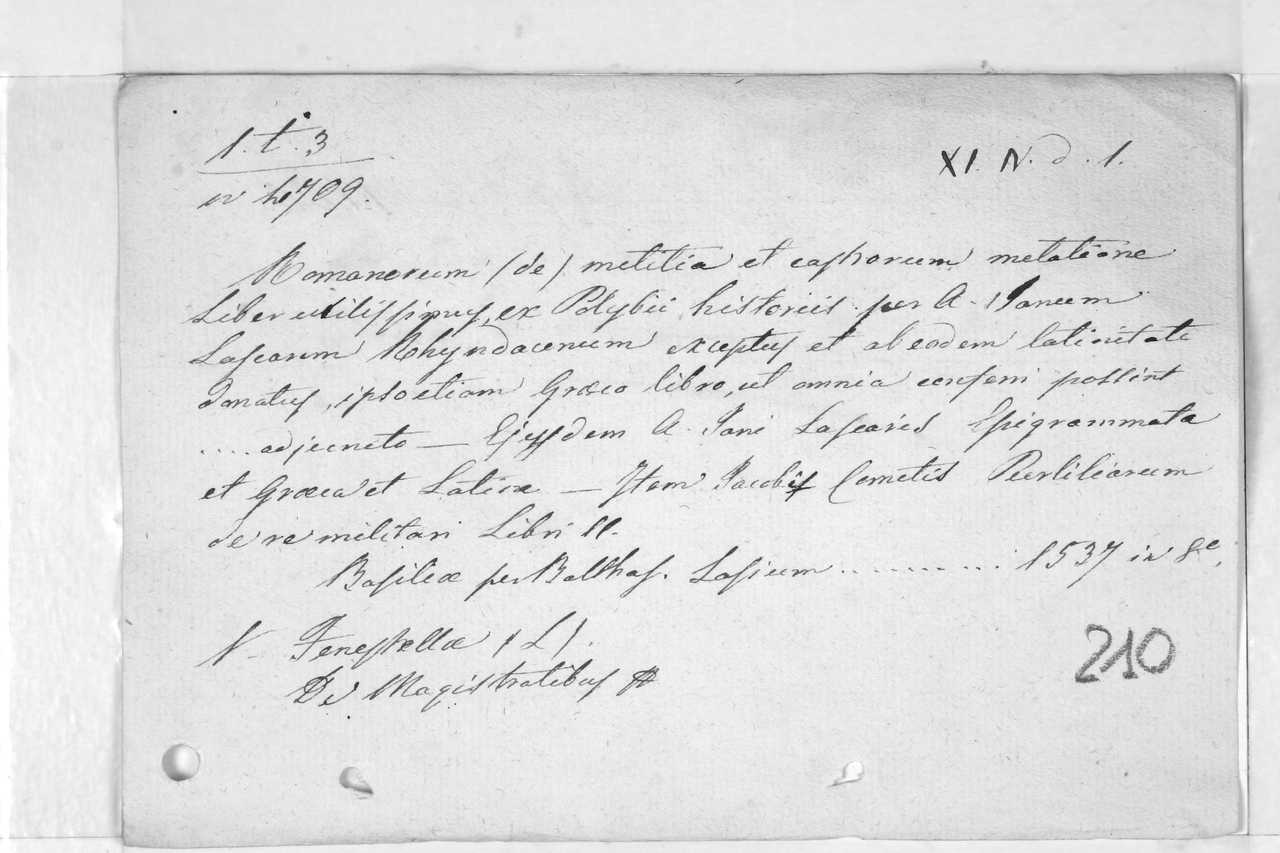 1. t. 3
XI. N. d. 1.
Romanorum (de) militia et castrorum metatione
Liber utilissimus, ex Polybii historiis per A. Janum
Lascarum Rhyndacenum exceptus et ab eodem latinitate
donatus, ipso etiam Græco libro, ut omnia conferri possint
.... adjuncto — Ejusdem A. Jani Lascaris Epigrammata
et Græca et Latina — Item Jacobi Comitis Purliliarum
de re militari Libri II.
Basileæ per Balthas. Lasium .......... 1537 in 8º.
V – Fenestella (L).
De Magistratibus
210